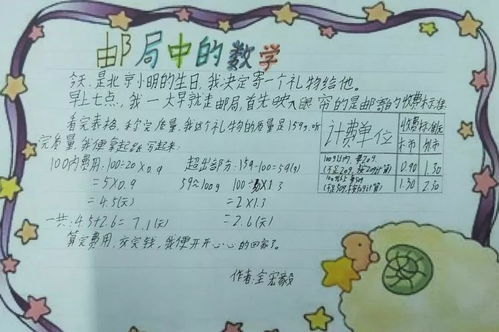 邮局中的数学
今天,是北京小明的生日,我决定寄一个礼物给他。
早上七点,我一大早就走邮局,首先映入眼帘的是邮寄的收费标准
看完表格,称完质量,我这个礼物的质量是159g,听
完质量,我便拿起笔写起来:
计费单位
收费标准/元
本市
外市
100g以内,每20g
(不足20g,按20g计算)
0.90
1.30
1.30
2.30
100内费用:100÷20×0.9
=5×0.9
=4.5(元)
超出部分:159-100=59(g)
59≈100g
=2×1.3
=2.6(元)
一共:4.5+2.6=7.1(元)
算完费用,交完钱,我便开开心心的回家了。
作者: